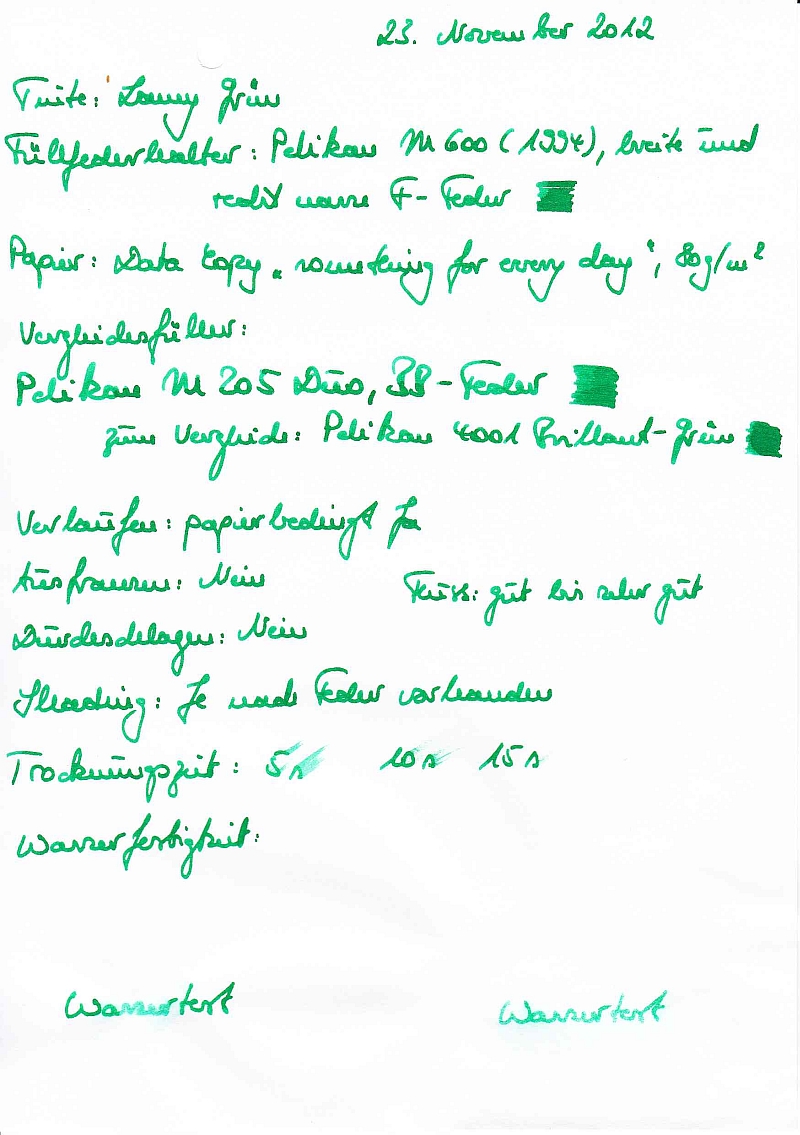 23. November 2012
Tinte: Lamy Grün
Füllfederhalter: Pelikan M 600 (1994), breite und
recht nasse F-Feder
Papier: Data Copy „something for every day“, 80g/m²
Vergleichsfüller:
Pelikan M 205 Duo, BB-Feder
zum Vergleich: Pelikan 4001 Brillant-Grün
Verlaufen: papierbedingt Ja
Ausfransen: Nein
Fluss: gut bis sehr gut
Durchschlagen: Nein
Shading: Je nach Feder vorhanden
Trocknungszeit: 5s 10s 15s
Wasserfestigkeit:
Wassertest Wassertest